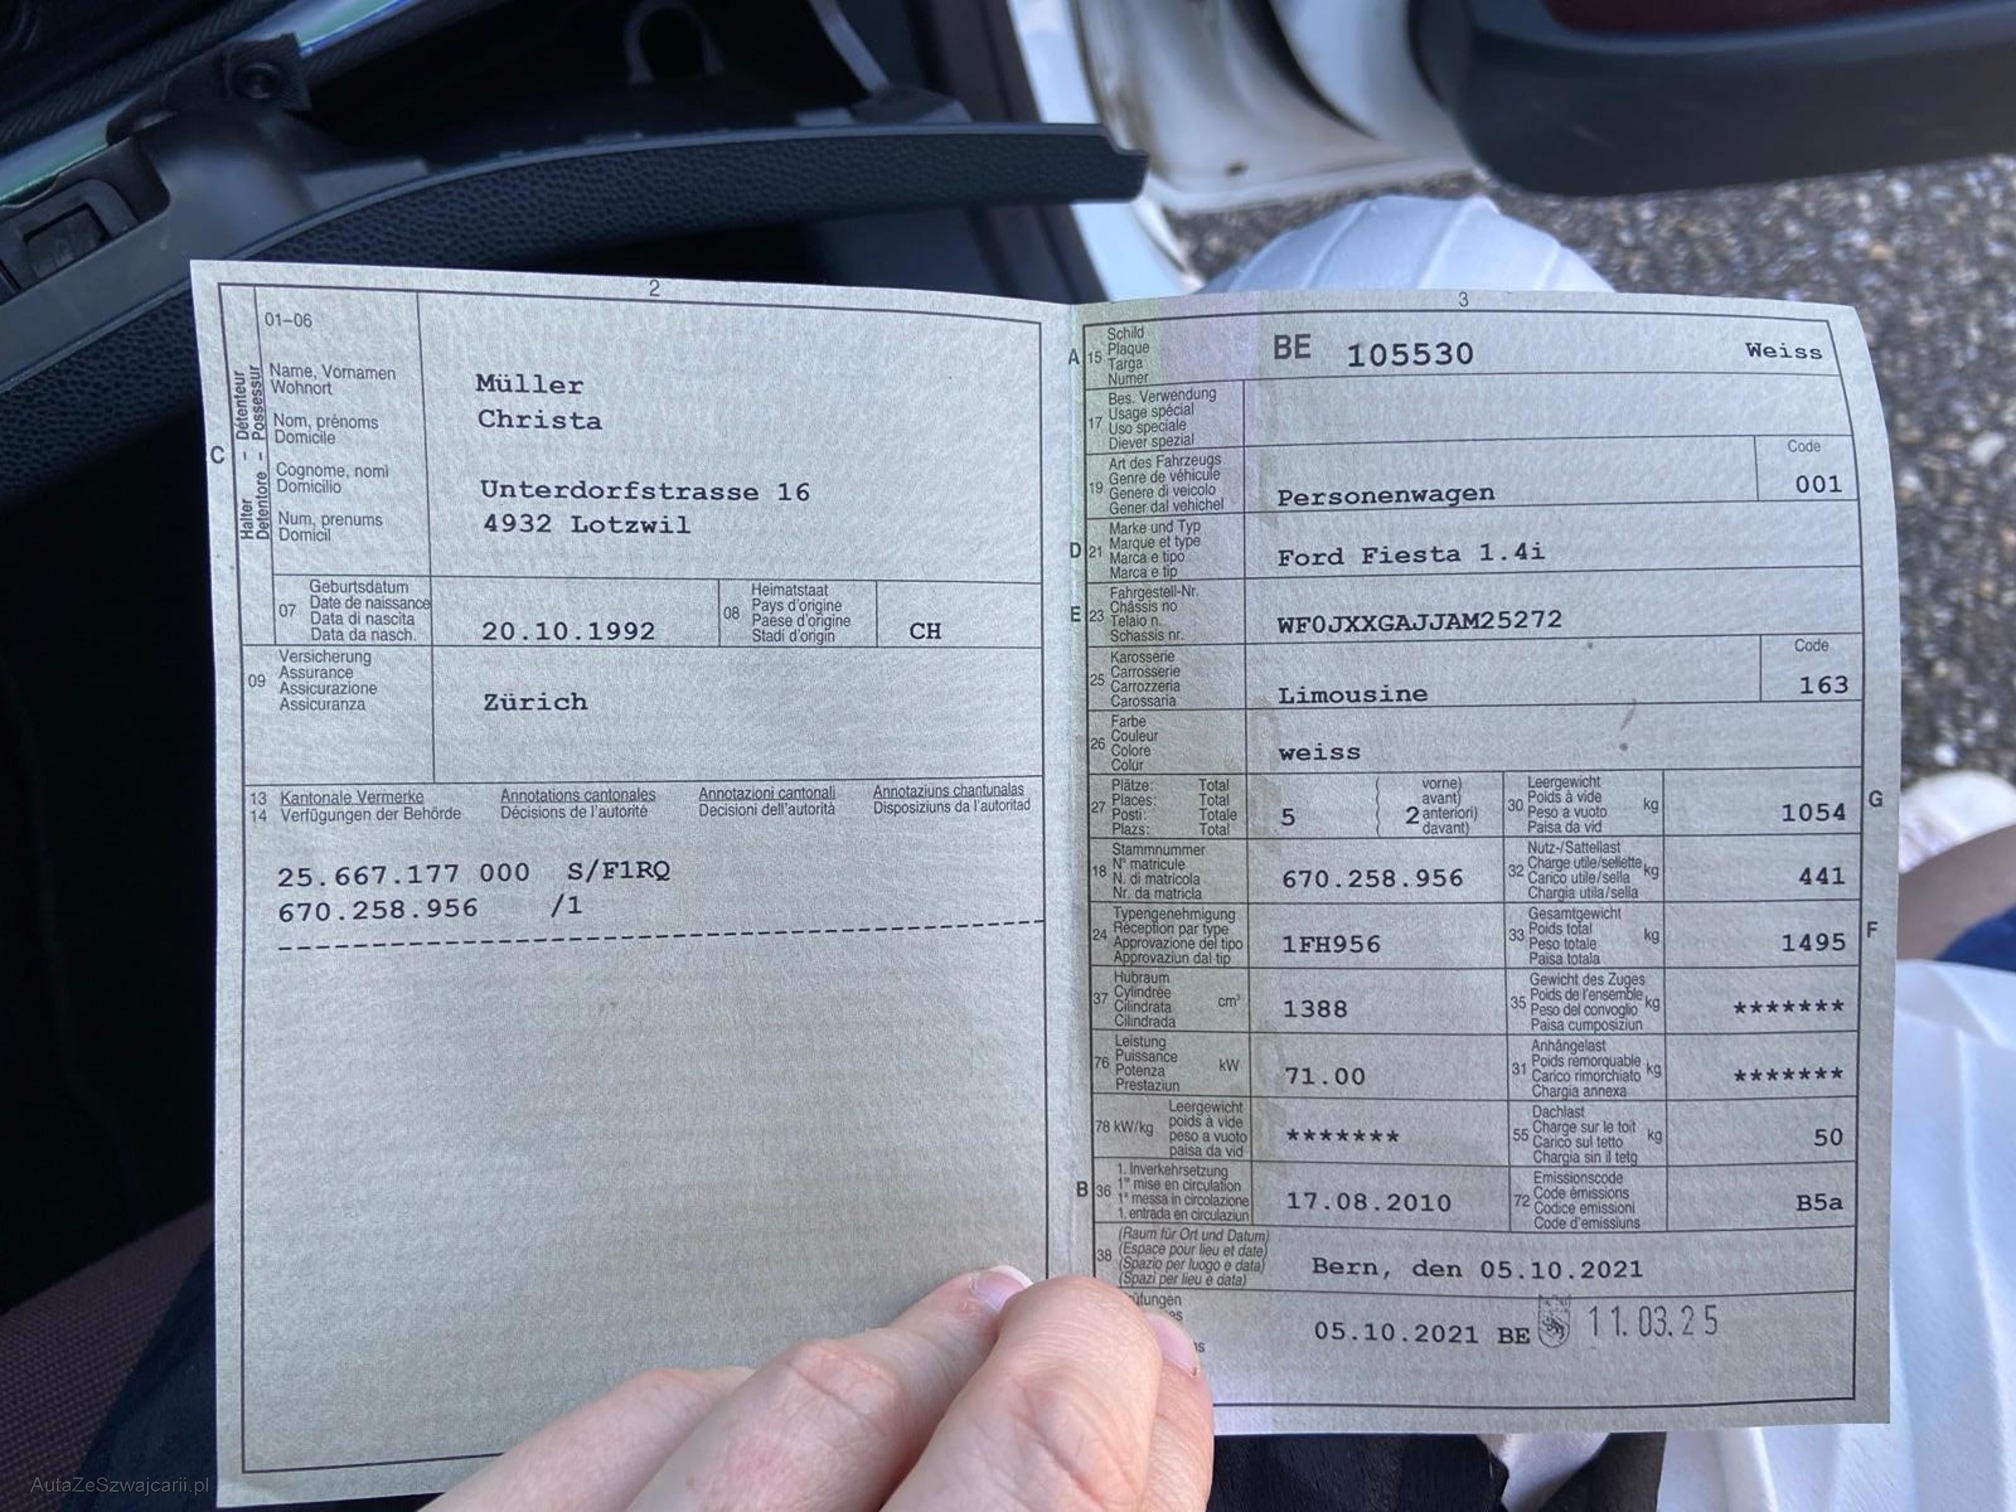 2
01–06
Halter – Détenteur
Detentore – Possessur
C
Name, Vornamen
Wohnort
Nom, prénoms
Domicile
Cognome, nomi
Domicilio
Num, prenums
Domicil
Müller
Christa
Unterdorfstrasse 16
4932 Lotzwil
07
Geburtsdatum
Date de naissance
Data di nascita
Data da nasch.
20.10.1992
08
Heimatstaat
Pays d'origine
Paese d'origine
Stadi d'origin
CH
09
Versicherung
Assurance
Assicurazione
Assicuranza
Zürich
13 Kantonale Vermerke Annotations cantonales Annotazioni cantonali Annotaziuns chantunalas
14 Verfügungen der Behörde Décisions de l'autorité Decisioni dell'autorità Disposiziuns da l'autoritad
25.667.177 000 S/F1RQ
670.258.956 /1
3
A 15
Schild
Plaque
Targa
Numer
BE 105530 Weiss
17
Bes. Verwendung
Usage spécial
Uso speciale
Diever spezial
19
Art des Fahrzeugs
Genre de véhicule
Genere di veicolo
Gener dal vehichel
Personenwagen
Code
001
D 21
Marke und Typ
Marque et type
Marca e tipo
Marca e tip
Ford Fiesta 1.4i
E 23
Fahrgestell-Nr.
Châssis no
Telaio n.
Schassis nr.
WF0JXXGAJJAM25272
25
Karosserie
Carrosserie
Carrozzeria
Carossaria
Limousine
Code
163
26
Farbe
Couleur
Colore
Colur
weiss
27
Plätze: Total
Places: Total
Posti: Totale
Plazs: Total
5
( vorne)
avant)
2 anteriori)
( davant)
30
Leergewicht
Poids à vide kg
Peso a vuoto
Paisa da vid
1054
G
18
Stammnummer
N° matricule
N. di matricola
Nr. da matricla
670.258.956
32
Nutz-/Sattellast
Charge utile/sellette kg
Carico utile/sella
Chargia utila/sella
441
24
Typengenehmigung
Réception par type
Approvazione del tipo
Approvaziun dal tip
1FH956
33
Gesamtgewicht
Poids total kg
Peso totale
Paisa totala
1495
F
37
Hubraum
Cylindrée cm³
Cilindrata
Cilindrada
1388
35
Gewicht des Zuges
Poids de l'ensemble kg
Peso del convoglio
Paisa cumposiziun
*******
76
Leistung
Puissance kW
Potenza
Prestaziun
71.00
31
Anhängelast
Poids remorquable kg
Carico rimorchiato
Chargia annexa
*******
78 kW/kg
Leergewicht
poids à vide
peso a vuoto
paisa da vid
*******
55
Dachlast
Charge sur le toit kg
Carico sul tetto
Chargia sin il tetg
50
B 36
1. Inverkehrsetzung
1re mise en circulation
1a messa in circolazione
1. entrada en circulaziun
17.08.2010
72
Emissionscode
Code émissions
Codice emissioni
Code d'emissiuns
B5a
38
(Raum für Ort und Datum)
(Espace pour lieu et date)
(Spazio per luogo e data)
(Spazi per lieu e data)
Bern, den 05.10.2021
05.10.2021 BE 11.03.25
AutaZeSzwajcarii.pl